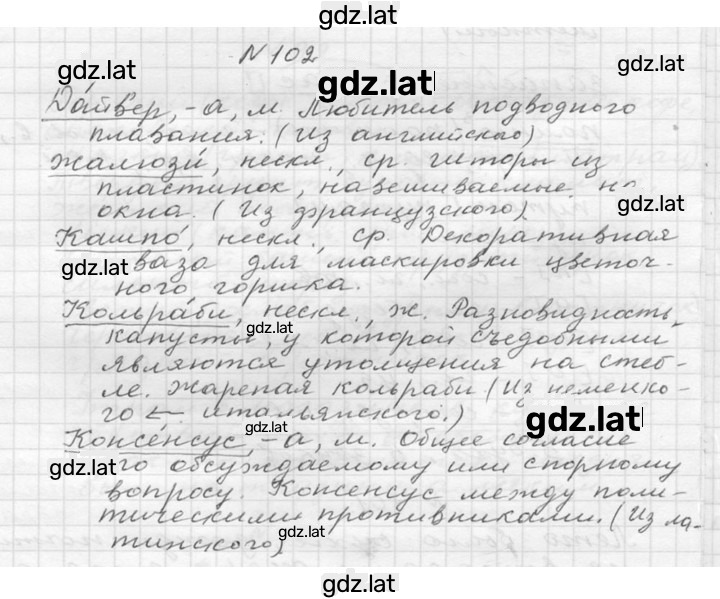 gdz.lat
N 102
gdz.lat
gdz.lat
gdz.lat
Да́йвер, -а, м. Любитель подводного
плавания. (Из английского)
Жалюзи́, нескл., ср. Шторы из
пластинок, навешиваемые на
окна. (Из французского)
gdz.lat
Кашпо́, нескл., ср. Декоративная
gdz.lat
ваза для маскировки цветоч-
ного горшка.
Кольра́би, нескл., ж. Разновидность
gdz.lat
капусты, у которой съедобными
являются утолщения на стеб-
ле. Жареная кольраби (Из немецко-
го ← итальянского.)
gdz.lat
gdz.lat
Консе́нсус, -а, м. Общее согласие
gdz.lat
обсуждаемому или спорному
вопросу. Консенсус между поли-
тическими противниками. (Из ла-
gdz.lat
тинского)
gdz.lat